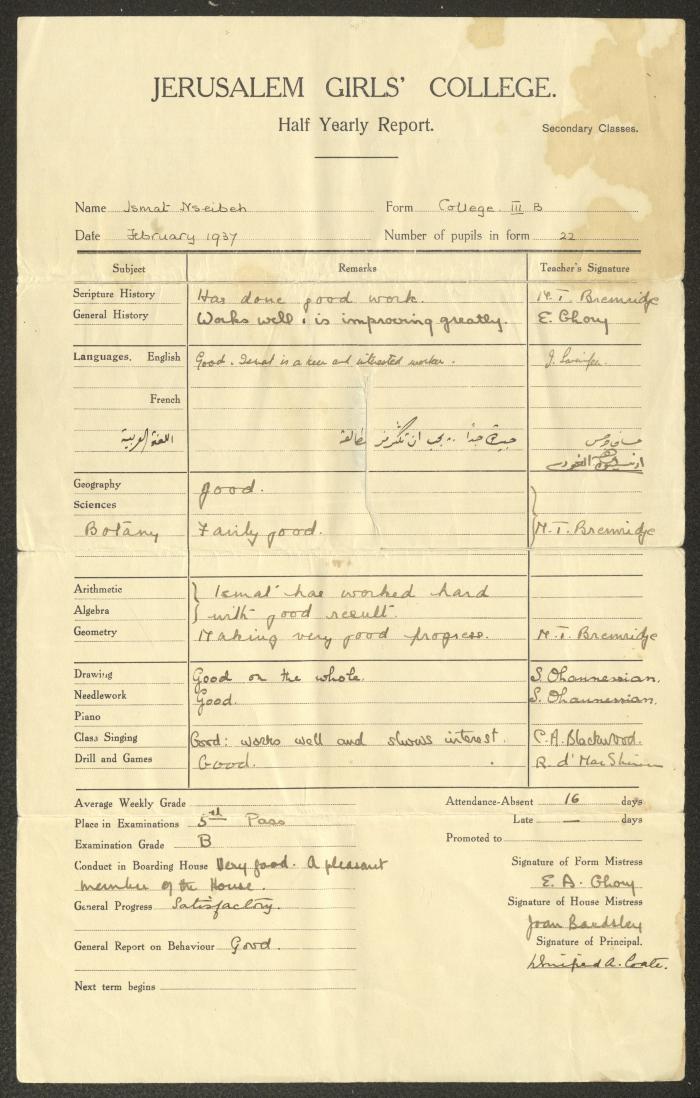 JERUSALEM GIRLS' COLLEGE.
Half Yearly Report.
Secondary Classes.
Name Ismat Nseibeh Form College III B
Date February 1937 Number of pupils in form 22
Subject Remarks Teacher's Signature
Scripture History Has done good work. M. T. Bremridge
General History Works well & is improving greatly. E. Ghory
Languages, English Good. Ismat is a keen and interested worker. J.
French
اللغة العربية جيدة جداً .. يجب ان تكثر من المطالعة
Geography good.
Sciences
Botany Fairly good. M. T. Bremridge
Arithmetic } Ismat has worked hard
Algebra } with good result.
Geometry Making very good progress. M. T. Bremridge
Drawing Good on the whole. S. Ohannessian.
Needlework Good. S. Ohannessian.
Piano
Class Singing Good: works well and shows interest. C. A. Blackwood.
Drill and Games Good. R. d'
Average Weekly Grade Attendance-Absent 16 days
Place in Examinations 5th Pass Late — days
Examination Grade B Promoted to
Conduct in Boarding House Very good. A pleasant
member of the House.
General Progress Satisfactory.
General Report on Behaviour Good.
Next term begins
Signature of Form Mistress
E. A. Ghory
Signature of House Mistress
Joan Bardsley
Signature of Principal.
Winifred A. Coate.